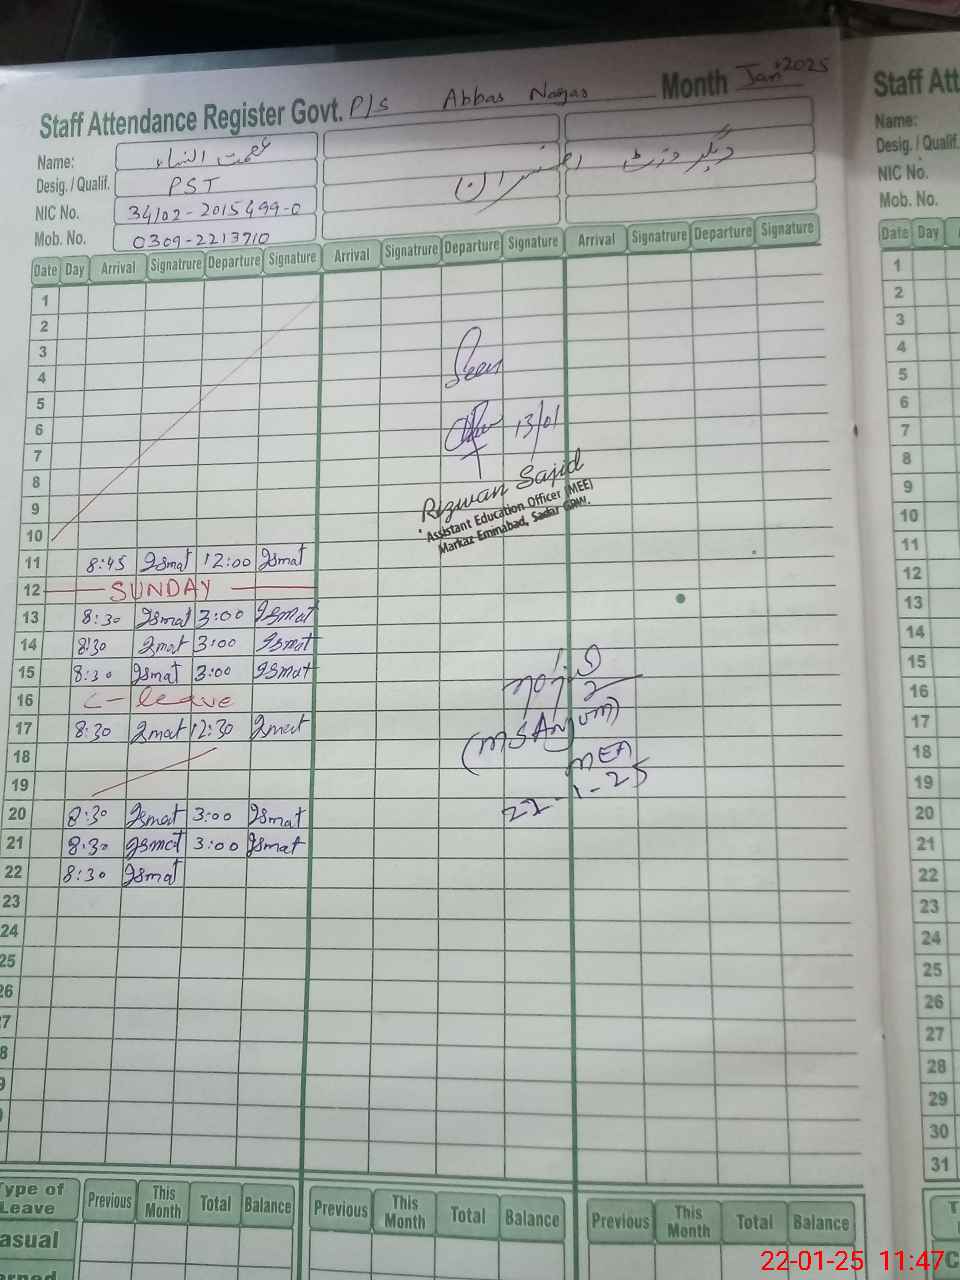 Staff Attendance Register Govt. P/S Abbas Nagar Month Jan 2025
Name: عصمت النساء
دیگر وزٹ افسران
Desig. / Qualif. PST
NIC No. 34102-2015499-0
Mob. No. 0309-2213910
Date Day Arrival Signatrure Departure Signature Arrival Signatrure Departure Signature Arrival Signatrure Departure Signature
1
2
3
4
5
6
7
8
9
10
11 8:45 Ismat 12:00 Ismat
12 SUNDAY
13 8:30 Ismat 3:00 Ismat
14 8:30 Ismat 3:00 Ismat
15 8:30 Ismat 3:00 Ismat
16 C-leave
17 8:30 Ismat 12:30 Ismat
18
19
20 8:30 Ismat 3:00 Ismat
21 8:30 Ismat 3:00 Ismat
22 8:30 Ismat
23
24
25
26
7
8
9
Seen
13/01
Rizwan Sajid
Assistant Education Officer (MEE)
Markaz Eminabad, Sadar GRW.
(MSAnjum)
MEA
22-1-25
Type of Leave Previous This Month Total Balance Previous This Month Total Balance Previous This Month Total Balance
asual
arned
Staff Att
Name:
Desig. / Qualif.
NIC No.
Mob. No.
Date Day
1
2
3
4
5
6
7
8
9
10
11
12
13
14
15
16
17
18
19
20
21
22
23
24
25
26
27
28
29
30
31
22-01-25 11:47